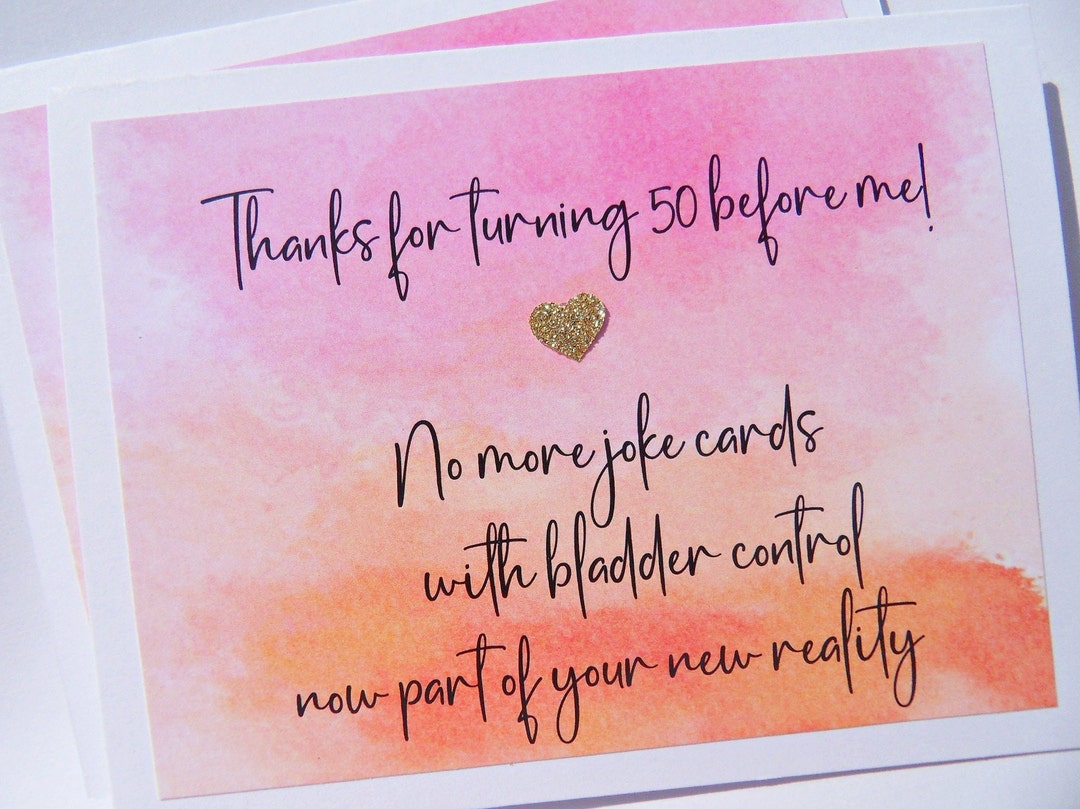 Thanks for turning 50 before me!
No more joke cards
with bladder control
now part of your new reality